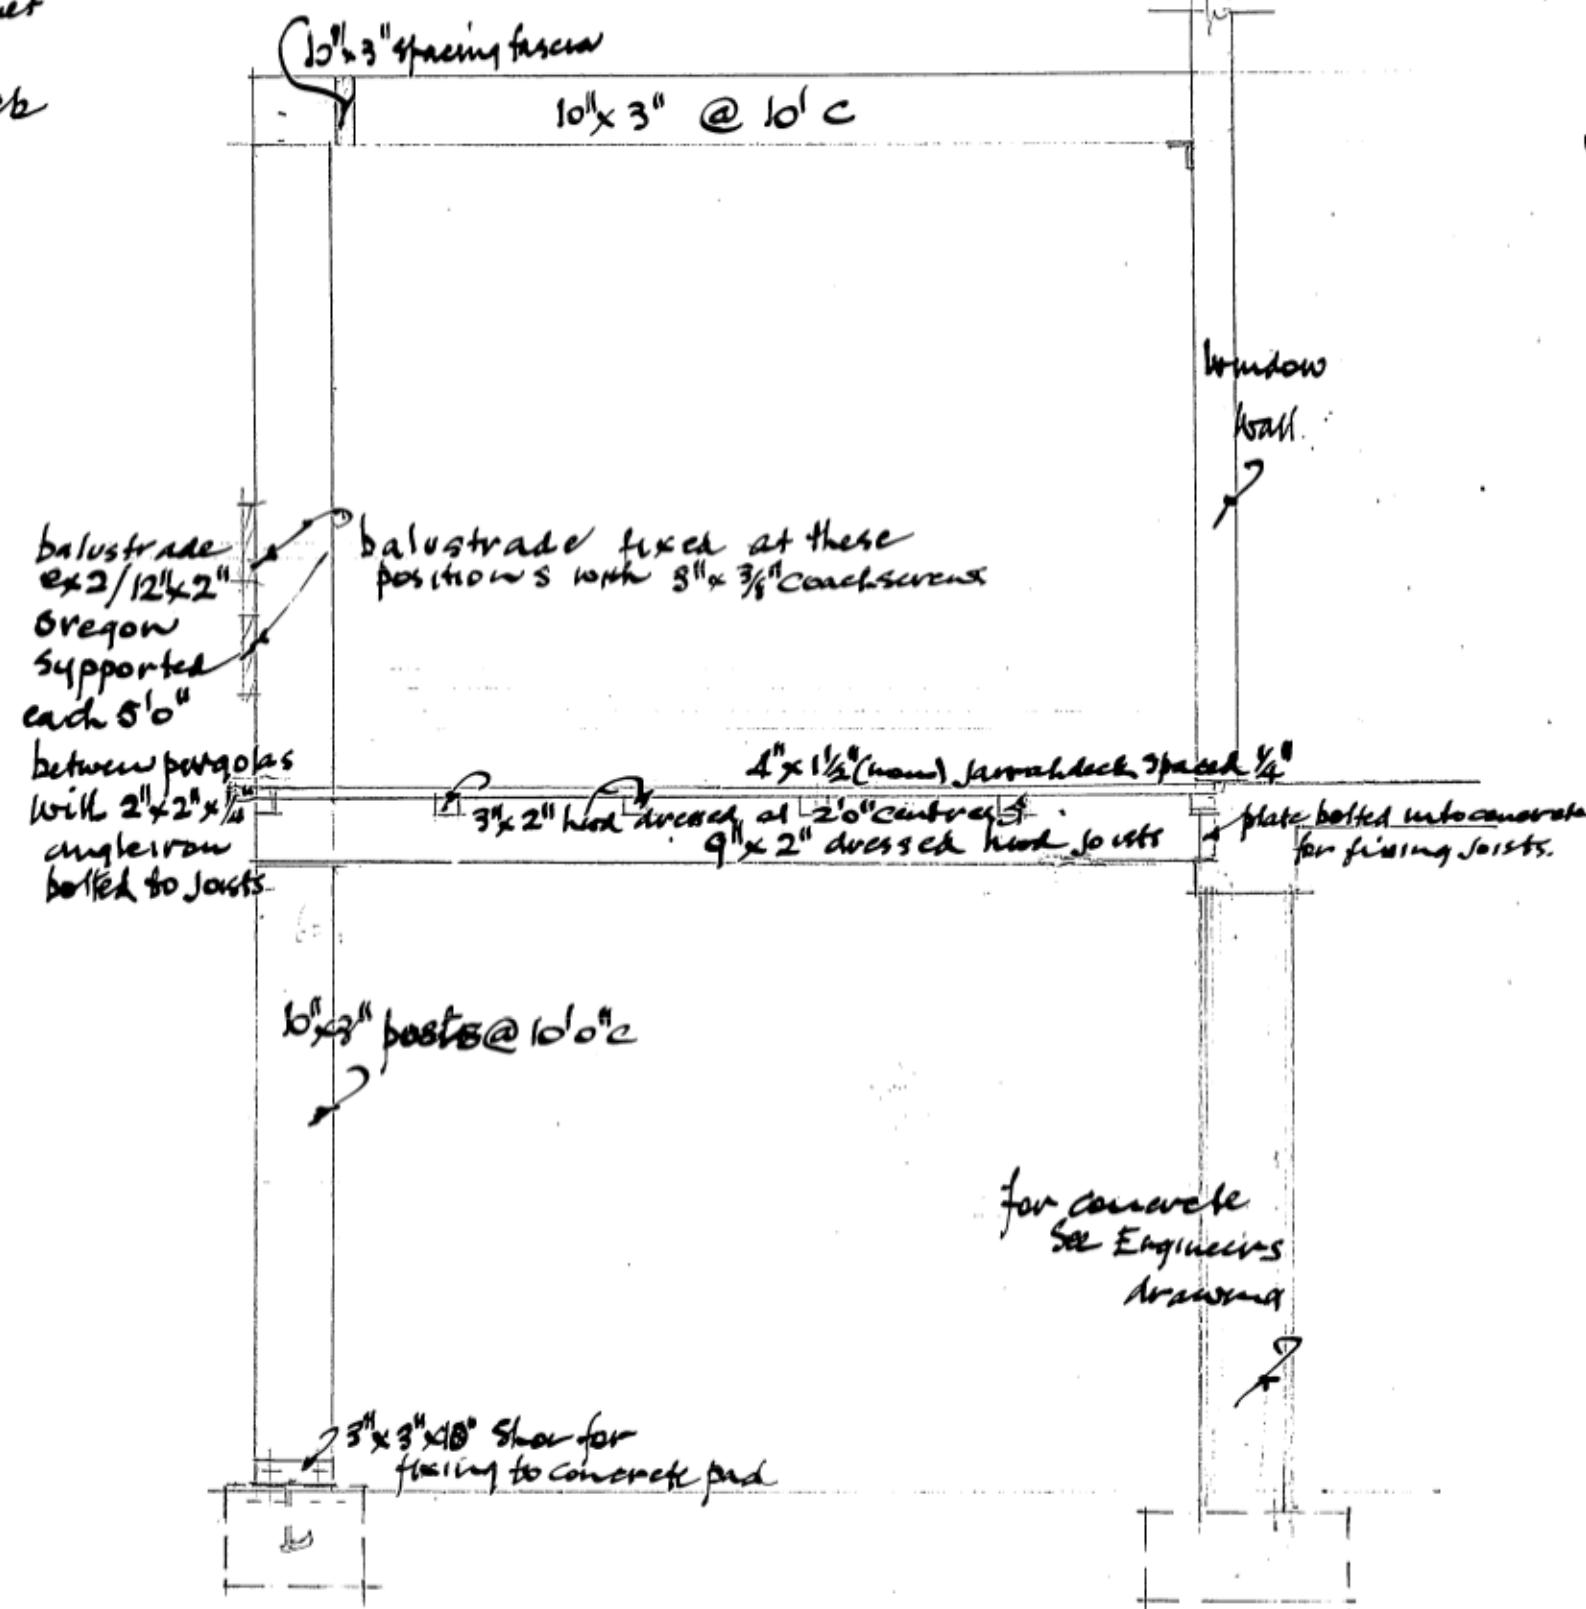 10"x3" spacing fascia
10"x 3" @ 10' C
window
wall.
balustrade
ex2/12"x2"
oregon
supported
each 5'0"
between pergolas
will 2"x2"x1/4"
angle iron
bolted to joists
balustrade fixed at these
positions with 3"x 3/8" coachscrews
4"x 1 1/2" (nom) jarrah deck spaced 1/4"
3"x 2" hwd dressed at 2'0" centres
9"x 2" dressed hwd joists
plate bolted into concrete
for fixing joists.
10"x3" posts @ 10'0"c
for concrete
see Engineers
drawing
3"x 3"x10" shoe for
fixing to concrete pad